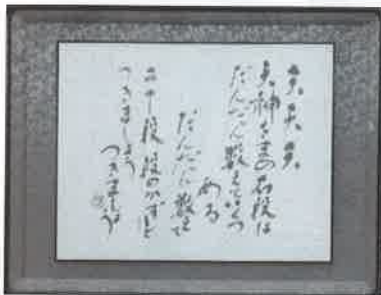 天天天
天神さまの石段は
だんだん数えていくつ
ある
だんだん数えて
二十段 段のかずほど
つきましょう
つきましょう